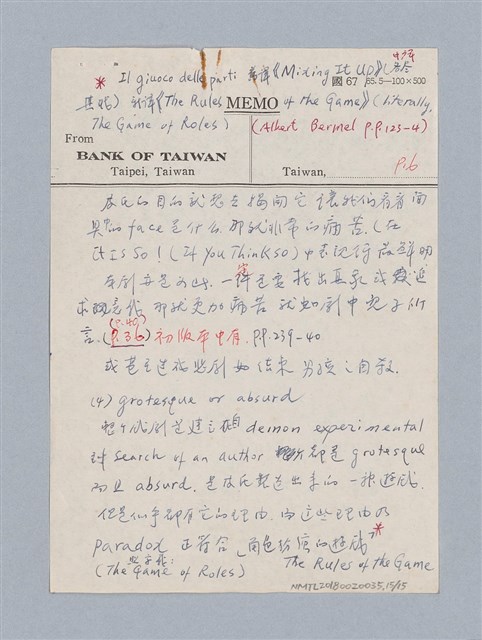 * Il giuoco delle parti 舊譯《Mixing It Up》(
國 67 85.5—100×500
其咗) 新譯《The Rules of the Game》(literally,
MEMO
The Game of Roles) (Albert Bermel p.p.123-4)
From
BANK OF TAIWAN
Taipei, Taiwan
Taiwan,
p.6
皮氏的目的就想去揭開它讓我們看看面
具的face是什么,那就非常的痛苦.(在
It Is So! (If You Think so) 中表現得最鮮明
本劇亦是如此. 一律是要找出真象或
求現, 那就更加痛苦 就如劇中兒子所
言. (p.36) (p.40) 初版本中有. p.p.239-40
或甚至造成悲劇如結束 男孩之自殺.
(4) grotesque or absurd
整个戲劇是建立在 demon experimental
對 search of an author 都是 grotesque
而且 absurd. 是皮氏製造出來的一種遊戲.
但是似乎却有它的理由. 而這些理由的
paradox 正符合「角色扮演的遊戲」*
(The Game of Roles) The Rules of the Game
NMTL20180020035,15/15